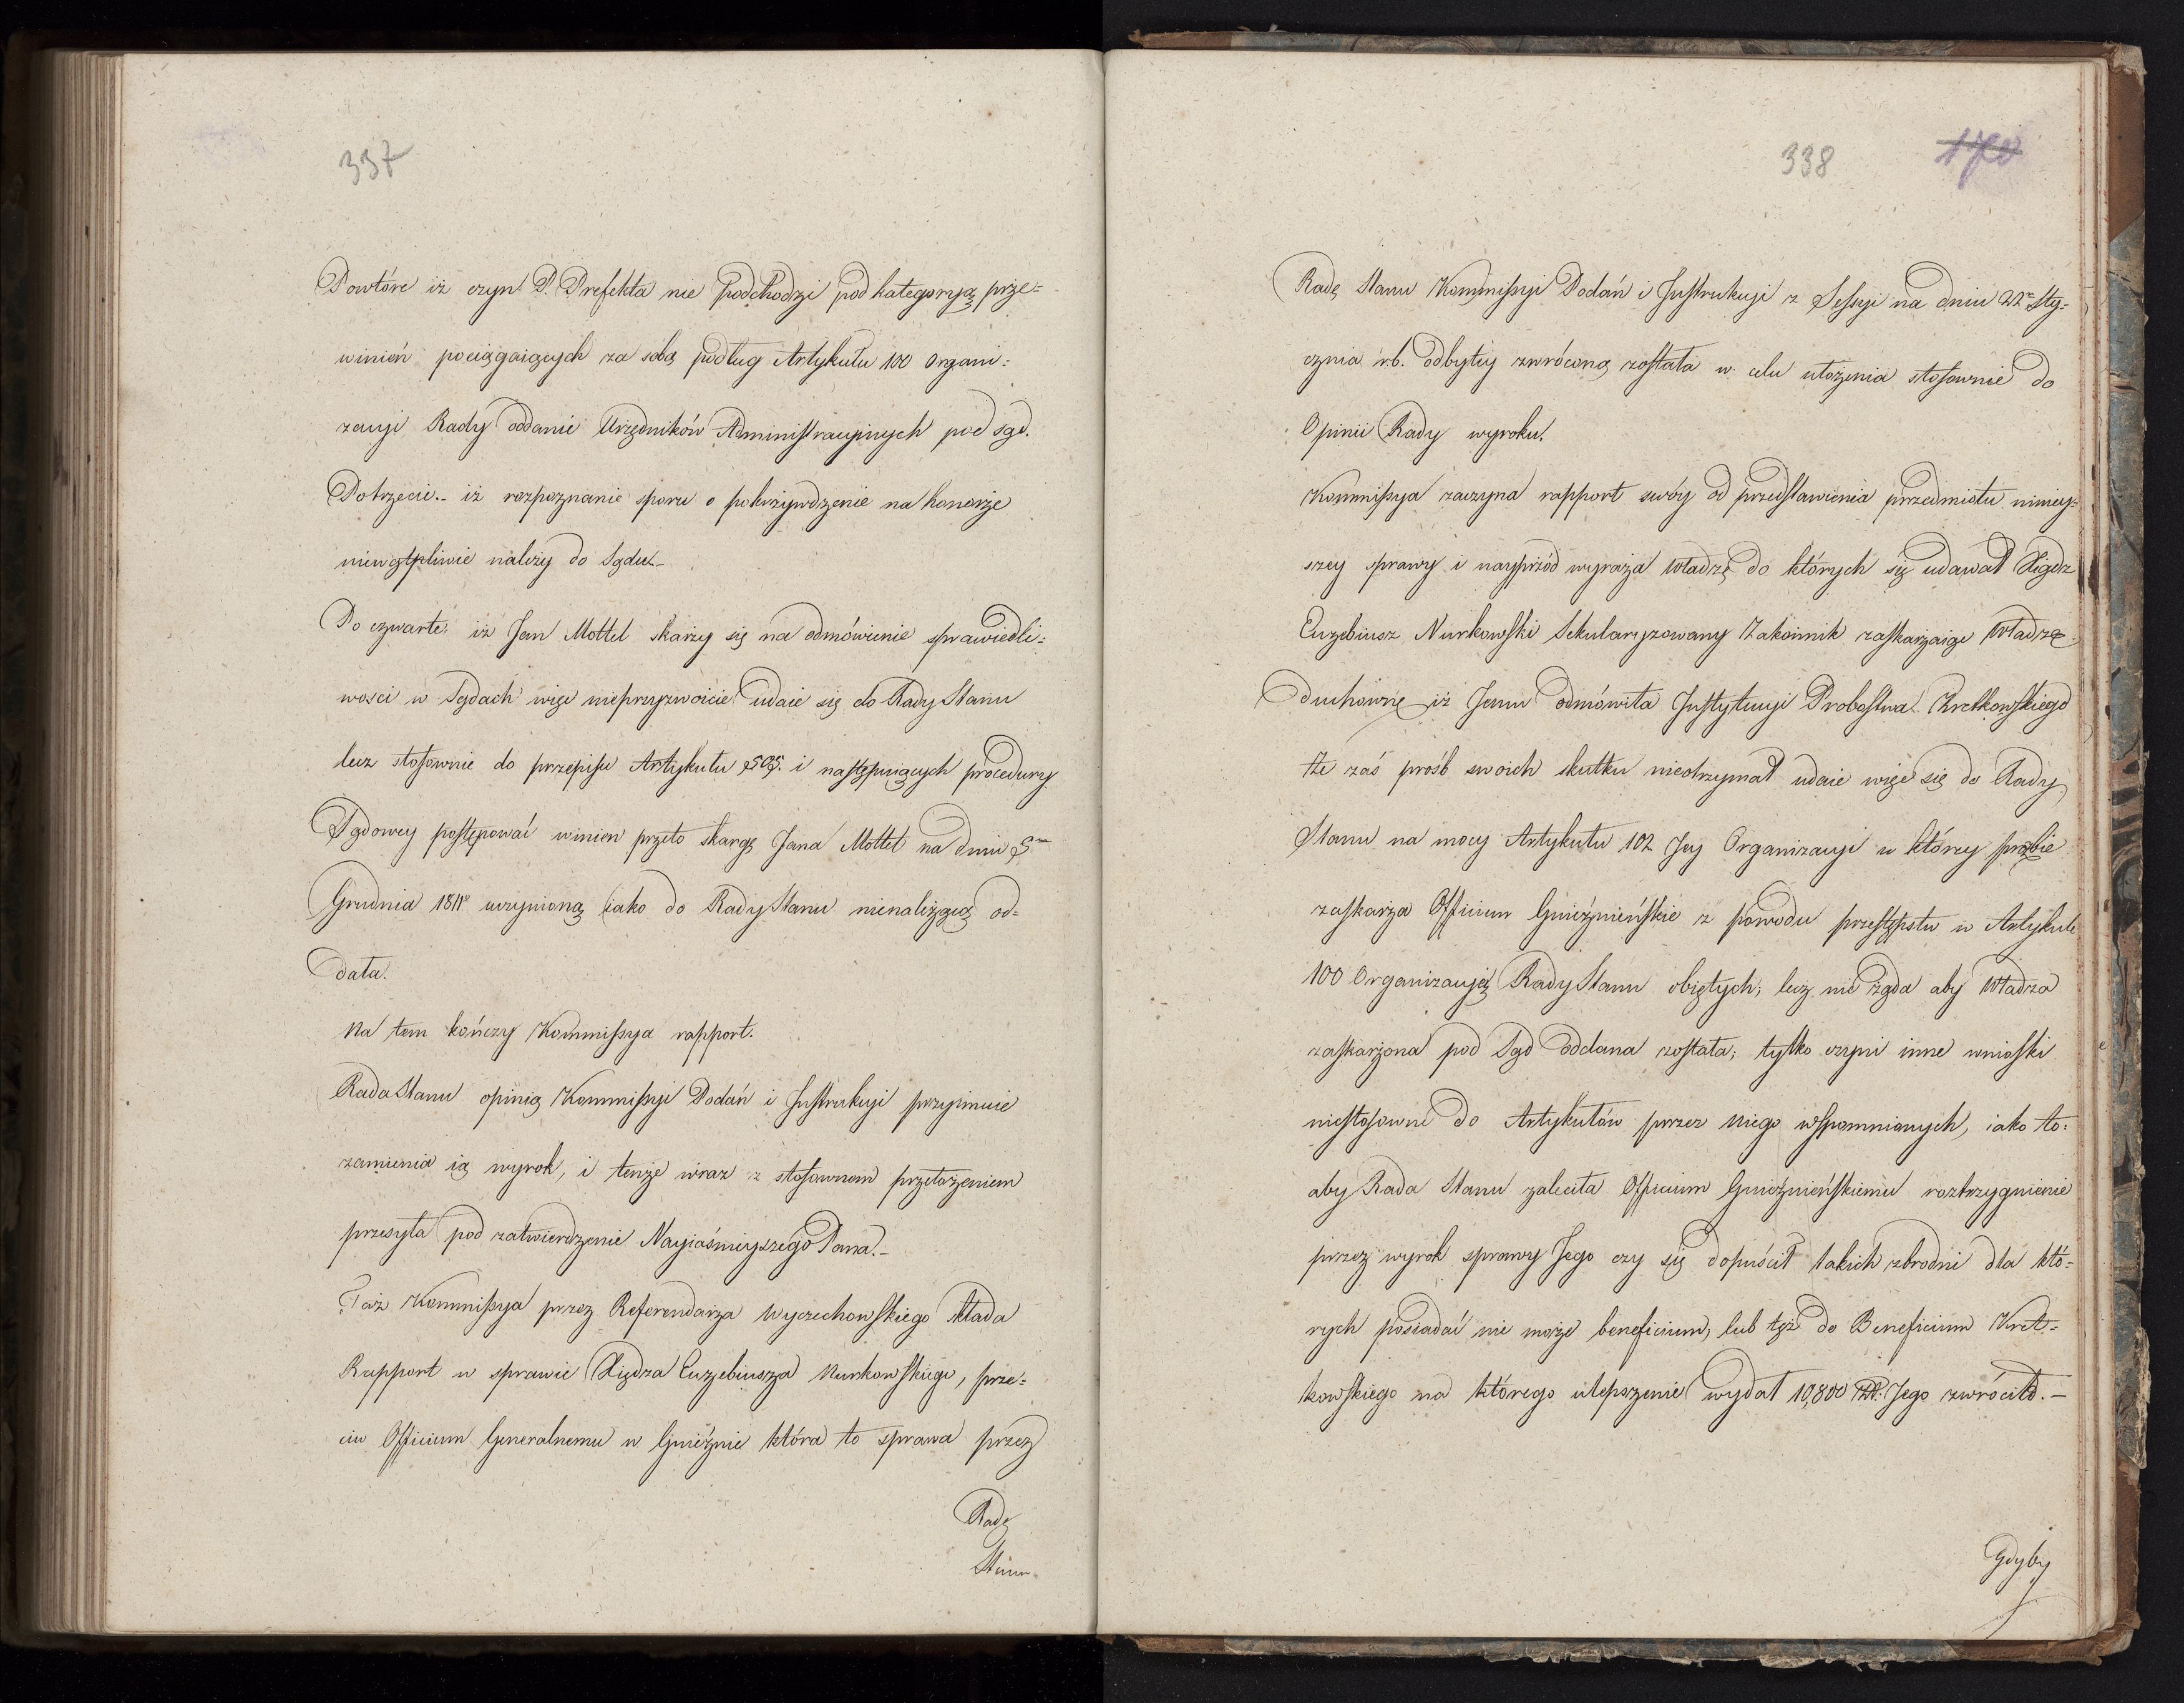 337
Powtóre iż czyn P. Prefekta nie podchodzi pod kategoryą prze=
winień pociągaiących za sobą podług Artykułu 100 Organi=
zacyi Rady oddanie Urzędników Administracyinych pod sąd.
Potrzecie.- iż rozpoznanie sporu o pokrzywdzenie na honorze
niewątpliwie należy do Sądu.-
Po czwarte: iż Jan Mottel skarży się na odmówienie sprawiedli=
wosci w Sądach więc nieprzyzwoicie udaie się do Rady Stanu
lecz stosownie do przepisu Artykułu 505. i następuiących procedury
Sądowey postępować winien przeto skargę Jana Mottel na dniu 5m
Grudnia 1811o uczynioną iako do Rady Stanu nienależącą od=
dała.
Na tem kończy Kommissya rapport.
Rada Stanu opinią Kommissyi Podań i Instrukcyi przyimuie
zamienia ią wyrok, i tenże wraz z stosownem przełożeniem
przesyła pod zatwierdzenie Nayiaśnieyszego Pana.-
Taż Kommissya przez Referendarza Wyczechowskiego składa
Rapport w sprawie Xiędza Euzebiusza Nurkowskiego, prze=
ciw Officium Generalnemu w Gnieźnie która to sprawa przez
Radę
Stanu
338 170
Radę Stanu Kommissyi Podań i Instrukcyi z Sessyi na dniu 22m Sty=
cznia r.b. odbytey zwróconą została w celu ułożenia stosownie do
Opinii Rady wyroku.
Kommissya zaczyna rapport swóy od przedstawienia przedmiotu niniey=
szey sprawy i nayprzód wyraża Władzę do których się udawał Xiądz
Euzebiusz Nurkowski Sekularyzowany Zakonnik zaskarżaiąc Władzę
Duchowną iż Jemu odmówiła Instytucyi Probostwa Kretkowskiego
Że zaś prośb swoich skutku nieotrzymał udaie więc się do Rady
Stanu na mocy Artykułu 102 Jey Organizacyi w którey prośbie
zaskarża Officium Gnieźnieńskie z powodu przestępstw w Artykule
100 Organizacyi Rady Stanu obiętych; lecz nie żąda aby Władza
zaskarżona pod Sąd oddana została; tylko czyni inne wnioski
niestosowne do Artykułów przez niego wspomnianych, iako to:
aby Rada Stanu zaleciła Officium Gnieźnieńskiemu roztrzygnienie
przez wyrok sprawy Jego czy się dopuścił takich zbrodni dla któ=
rych posiadać nie może beneficium, lub też do Beneficium Kret=
kowskiego na którego ulepszenie wydał 10,800 Zł. Jego zwróciło.-
Gdyby